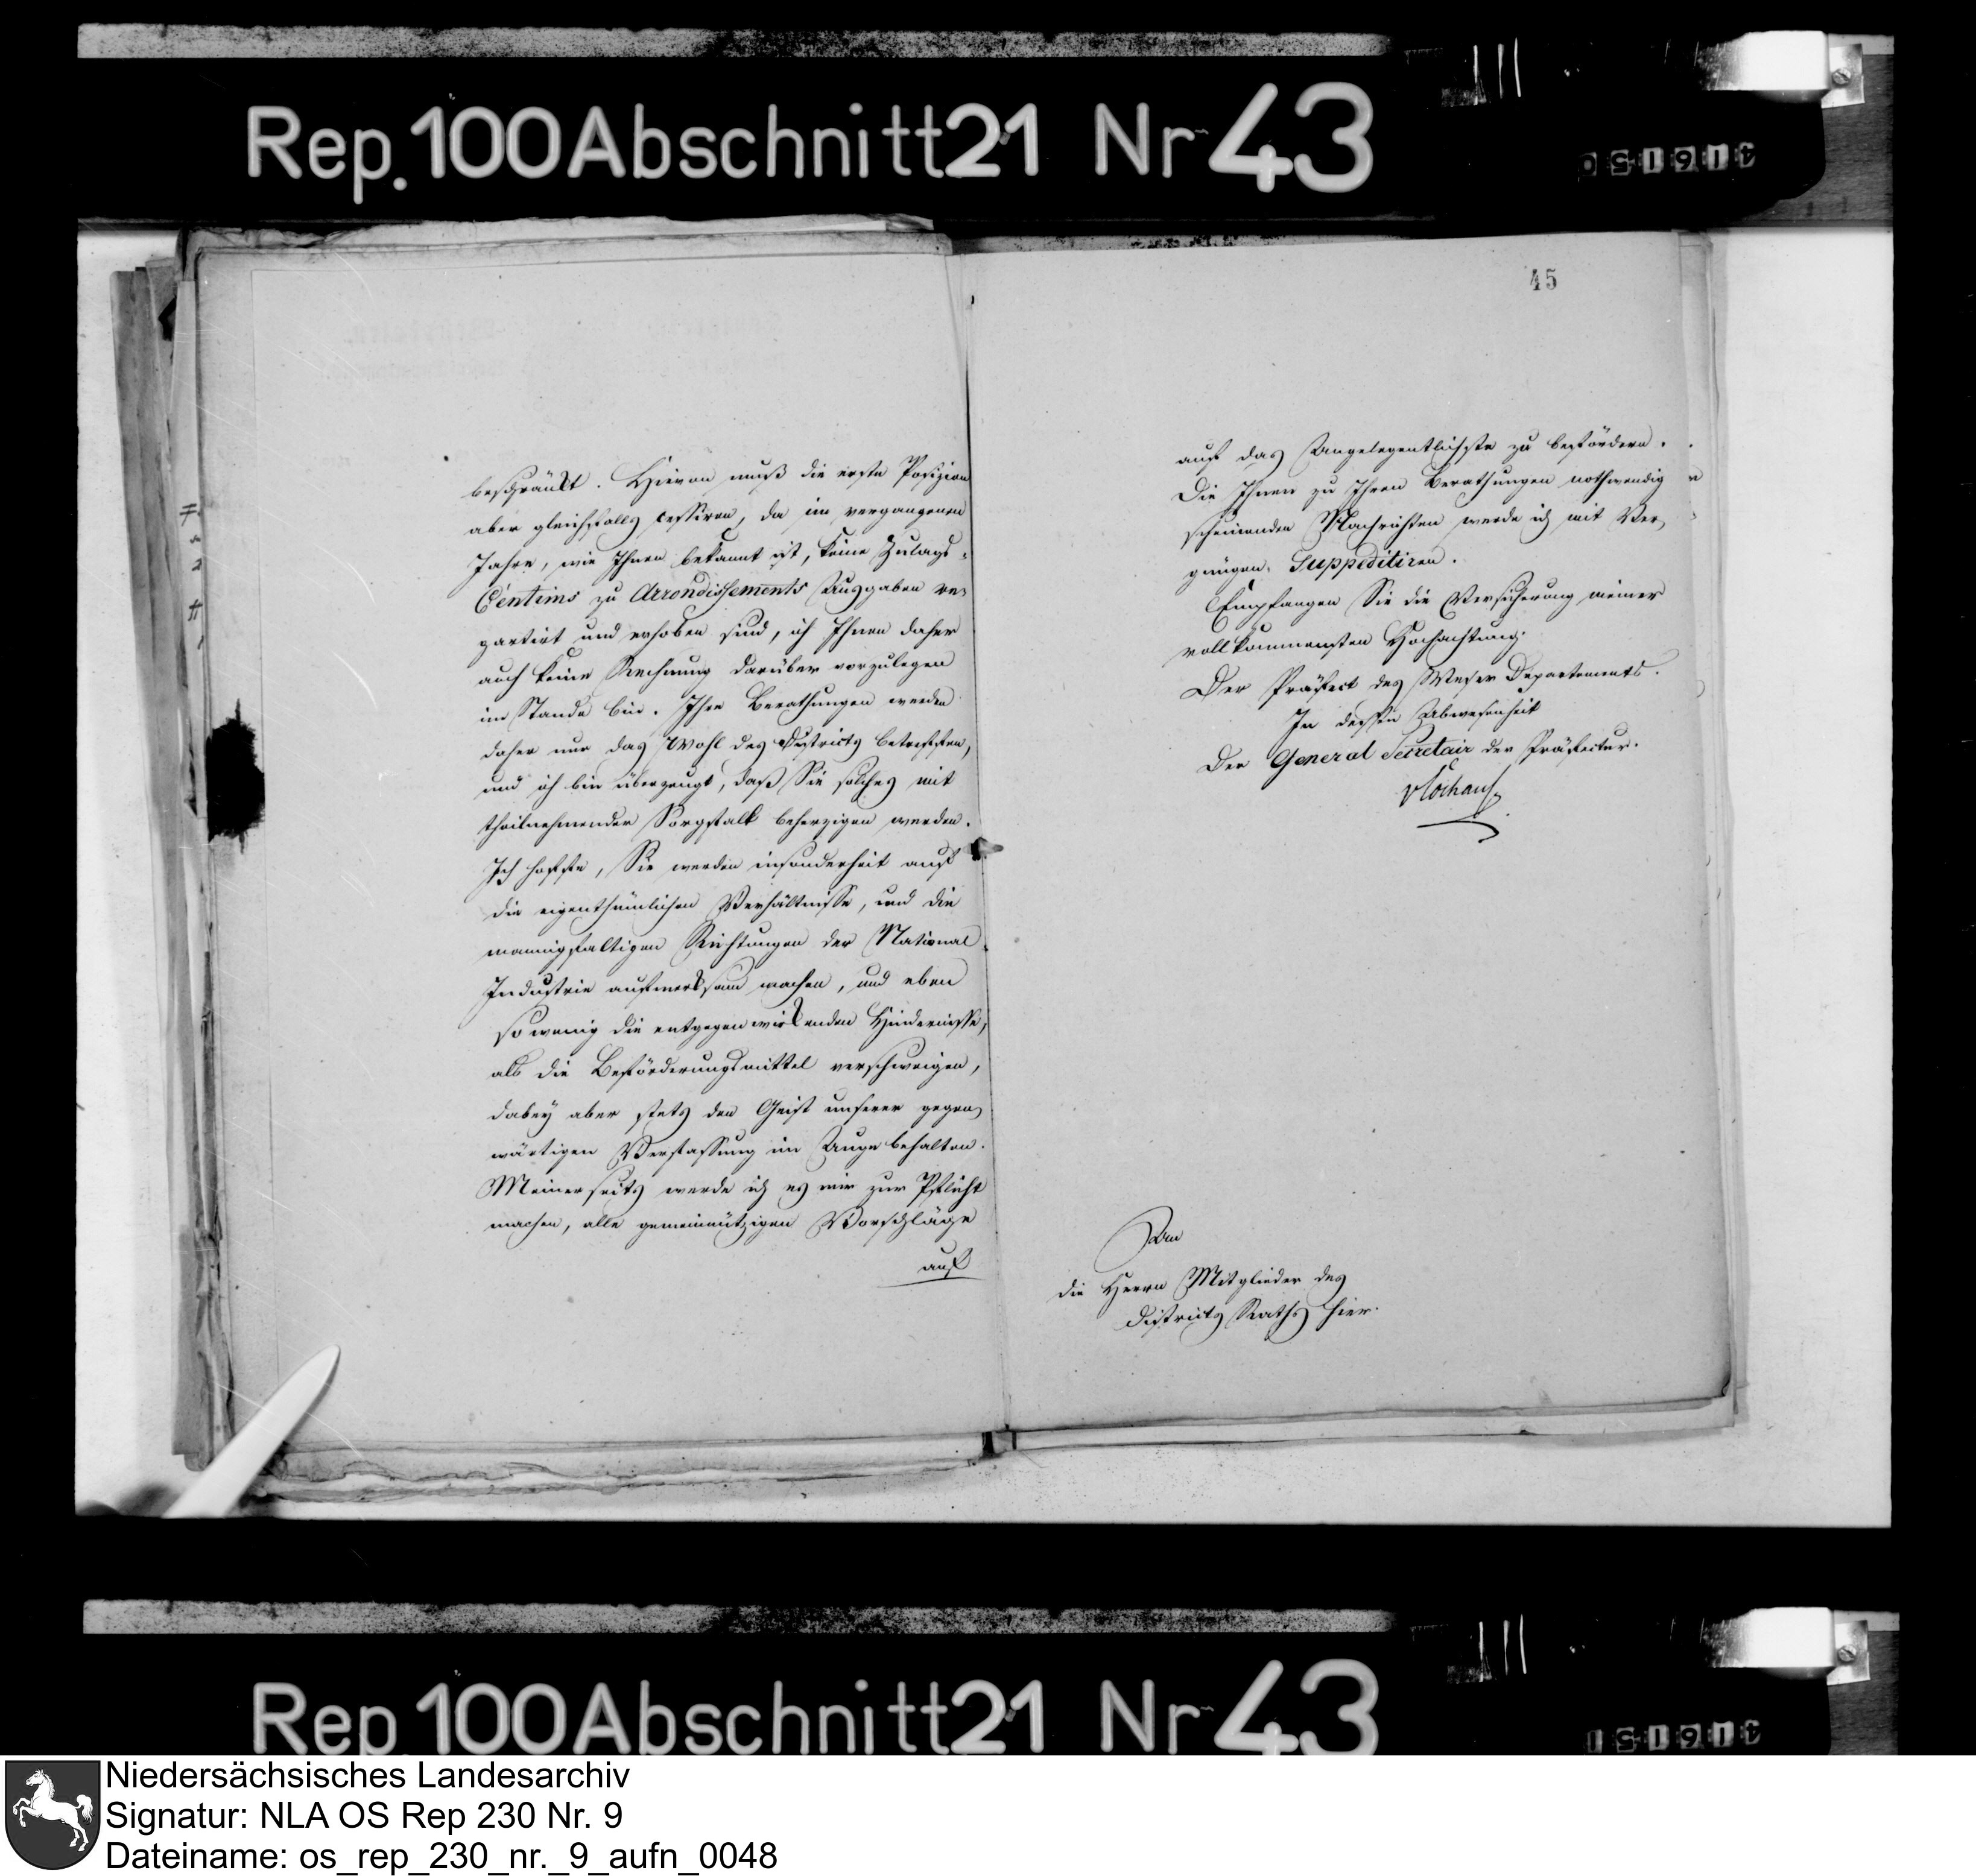 Rep. 100 Abschnitt 21 Nr 43
45
beschränkt. Hievon muß die erste Position
aber gleichfalls cessiren, da im vergangenen
Jahre, wie Ihnen bekannt ist, keine Zulags-
Centims zu Arrondissements Ausgaben re-
partirt und erhoben sind, ich Ihnen daher
auch keine Rechnung darüber vorzulegen
im Stande bin. Ihre Berathungen werden
daher nur das Wohl des Districts betreffen,
und ich bin überzeugt, daß Sie solches mit
theilnehmender Sorgfalt beherzigen werden.
Ich hoffe, Sie werden insonderheit auf
die eigenthümlichen Verhältnisse, und die
mannigfaltigen Richtungen der National-
Industrie aufmerksam machen, und eben
so wenig die entgegenwirkenden Hindernisse,
als die Beförderungsmittel verschweigen,
dabey aber stets den Geist unserer gegen-
wärtigen Verfassung im Auge behalten.
Meinerseits werde ich es mir zur Pflicht
machen, alle gemeinnützigen Vorschläge
auf
auf das Angelegentlichste zu befördern.
Die Ihnen zu Ihren Berathungen nothwendig
scheinenden Nachrichten werde ich mit Ver-
gnügen Suppeditiren.
Empfangen Sie die Versicherung meiner
vollkommensten Hochachtung.
Der Präfect des Weser Departements.
In dessen Abwesenheit
Der General Secretair der Präfectur.
An
die Herrn Mitglieder des
Districts Raths hier.
Rep 100 Abschnitt 21 Nr 43
Niedersächsisches Landesarchiv
Signatur: NLA OS Rep 230 Nr. 9
Dateiname: os_rep_230_nr._9_aufn_0048